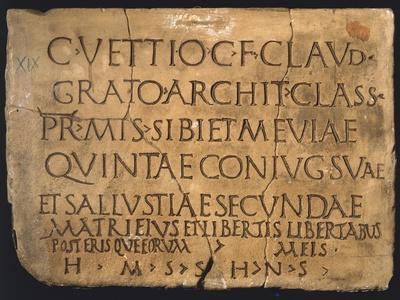 XIX
C·VETTIO·C·F·CLAVD·
GRATO·ARCHIT·CLASS·
PR·MIS·SIBI ET MEVIAE
QVINTAE CONIVG·SVAE
ET SALLVSTIAE SECVNDAE
MATRI EIVS ET LIBERTIS LIBERTABVS
POSTERISQVE EORVM MEIS·
H · M · S · S · H · N · S ·